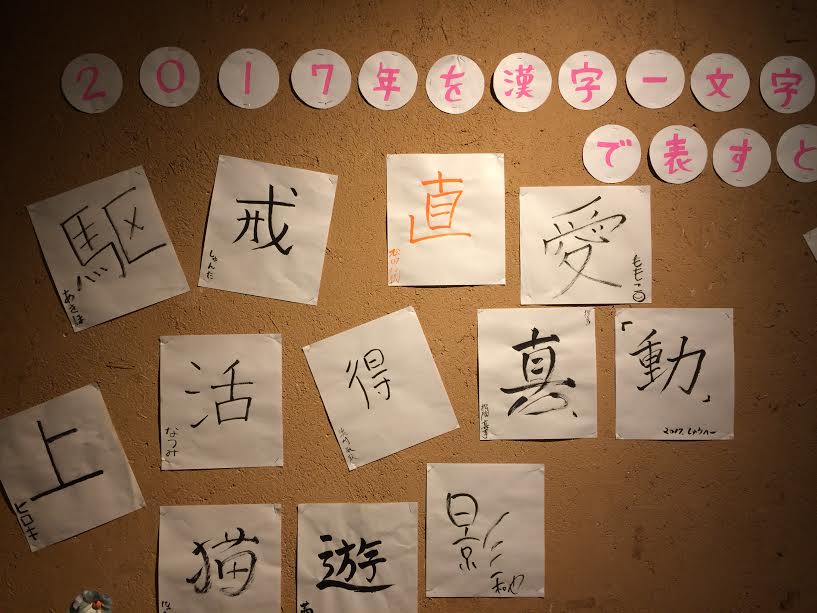 2017年を漢字一文字
で表すと
駆
あきほ
戒
しゅんた
直
愛
ももこ
活
なつみ
得
真
「動」
2017. しょうへー
上
ヒロキ
猫
遊
影
和也